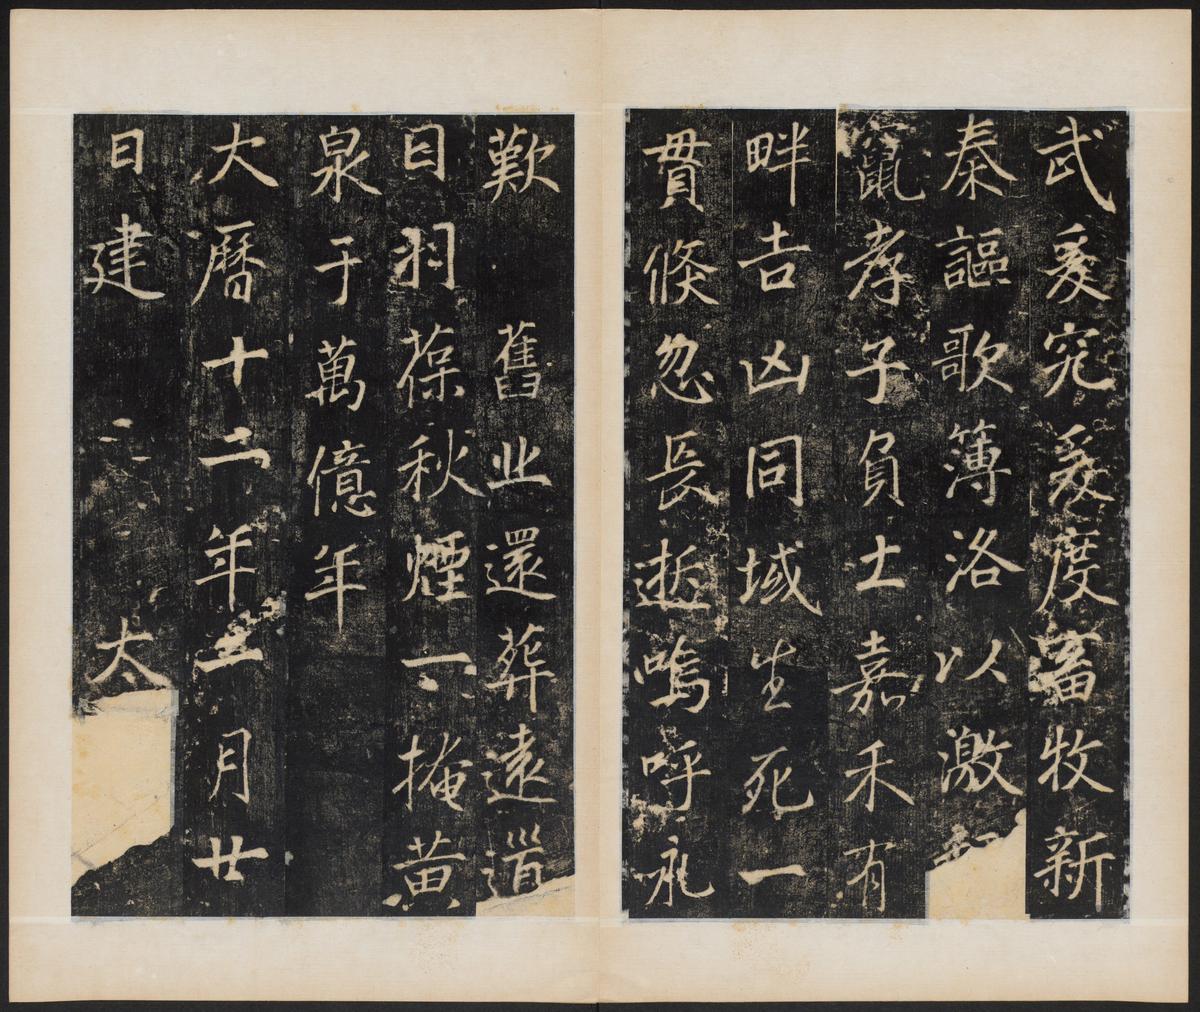 武爰究爰度畜牧新
秦謳歌簿洛以激
鼠孝子負土嘉禾有
畔吉凶同域生死一
貫倏忽長逝嗚呼永
歎舊业還葬遠道
日羽葆秋煙一掩黃
泉于萬億年
大曆十二年五月廿
日建 太